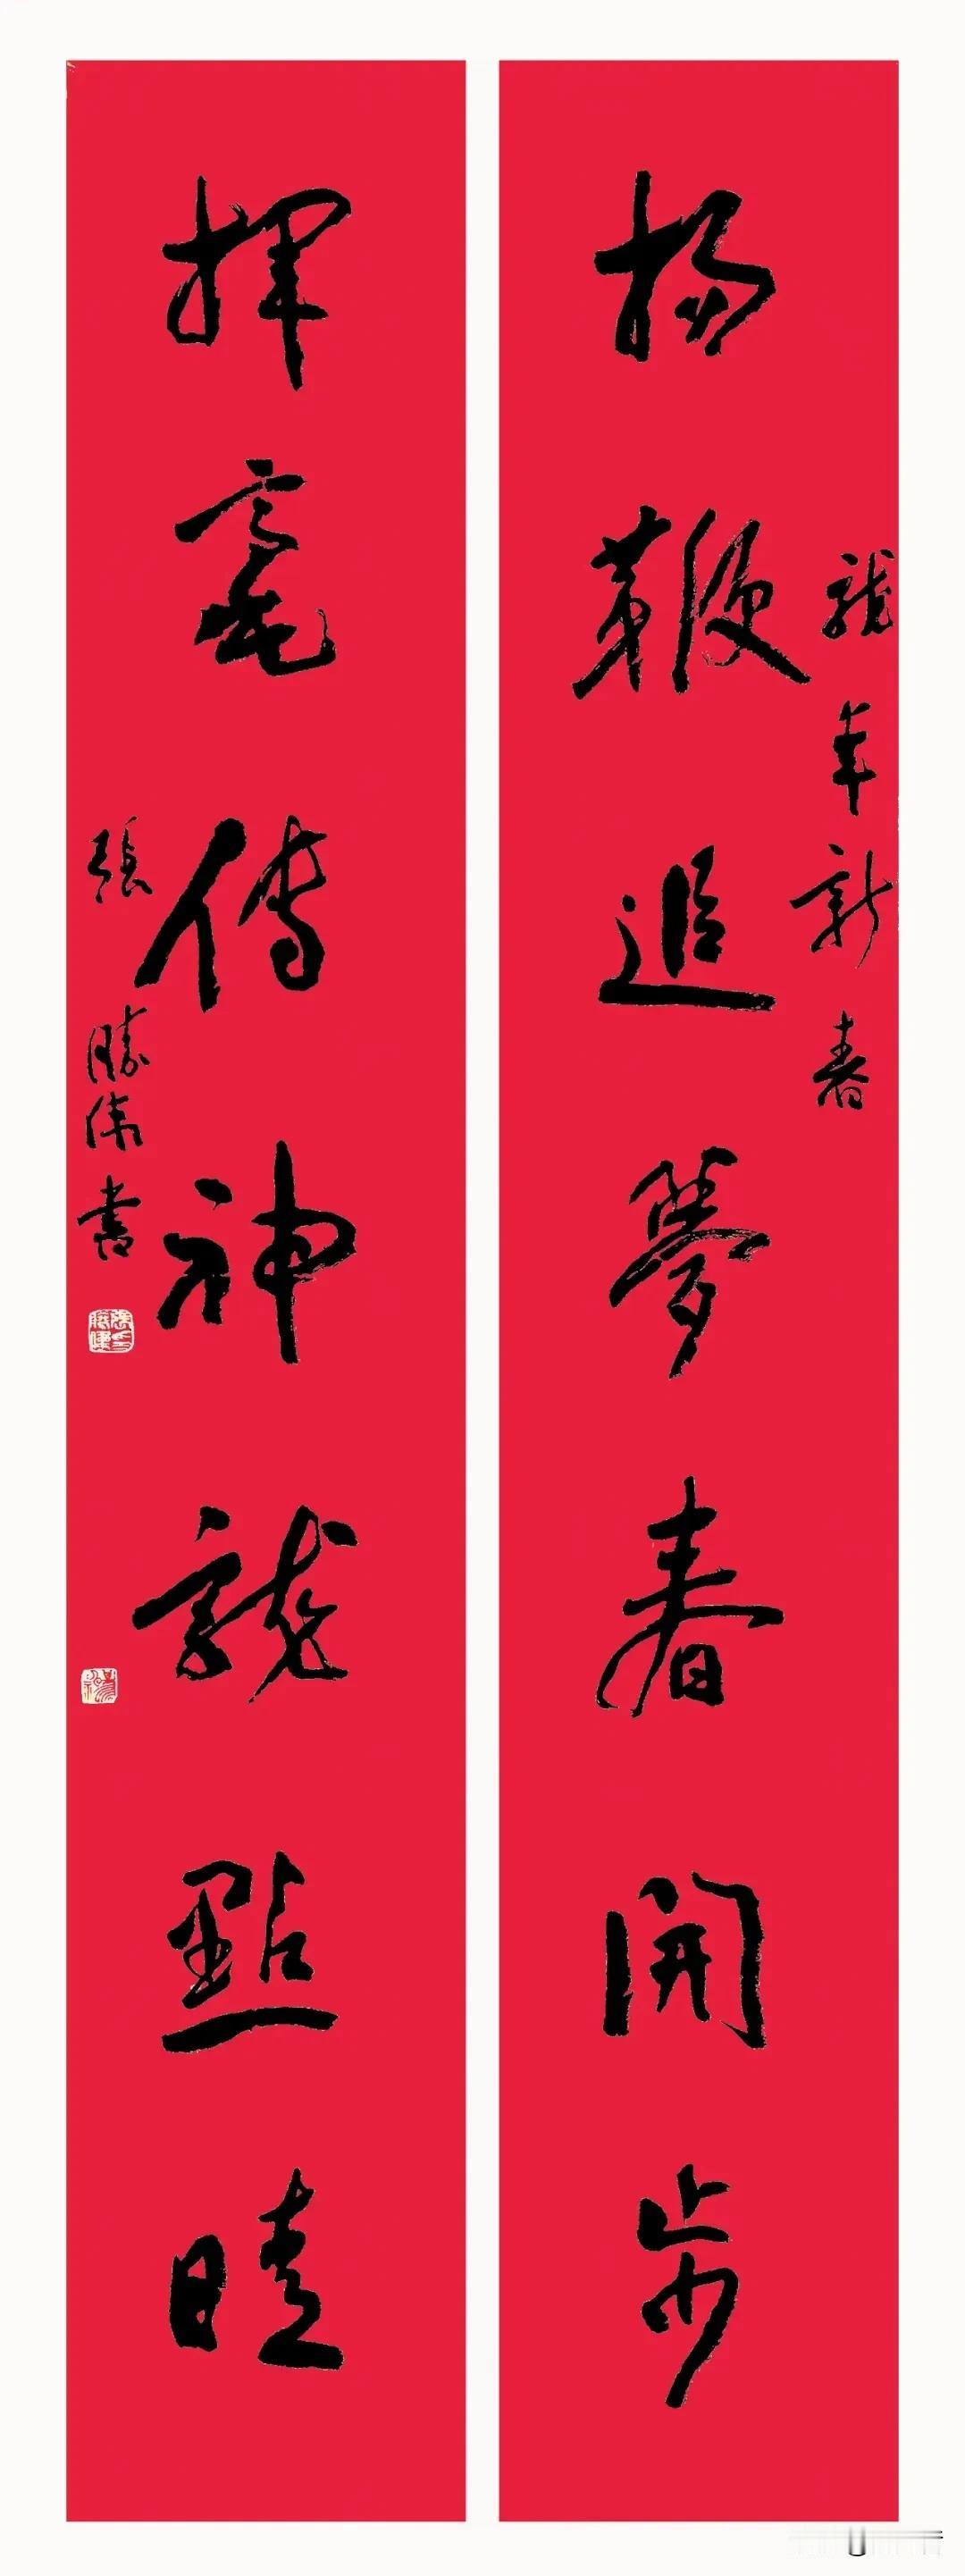 龍年新春
揚鞭追夢春開步
揮毫傳神龍點睛
張勝偉書